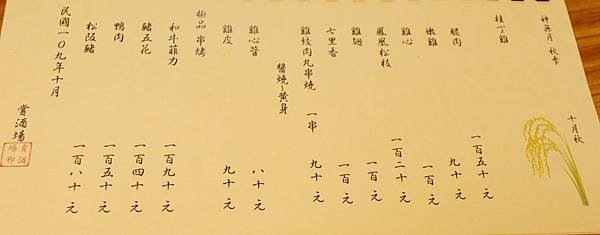 神無月 秋季
十月秋
桂丁雞
腿肉 一百五十元
嫩雞 九十元
雞心 一百元
鳳凰松枝 一百二十元
雞翅 一百元
七里香 一百元
雞絞肉丸串燒 一串 九十元
醬燒~黃身
雞心管 八十元
雞皮 九十元
極品 串烤
和牛菲力 一百九十元
豬五花 一百四十元
鴨肉 一百五十元
松阪豬 一百八十元
民國一〇九年十月
賞酒場
賞酒場印